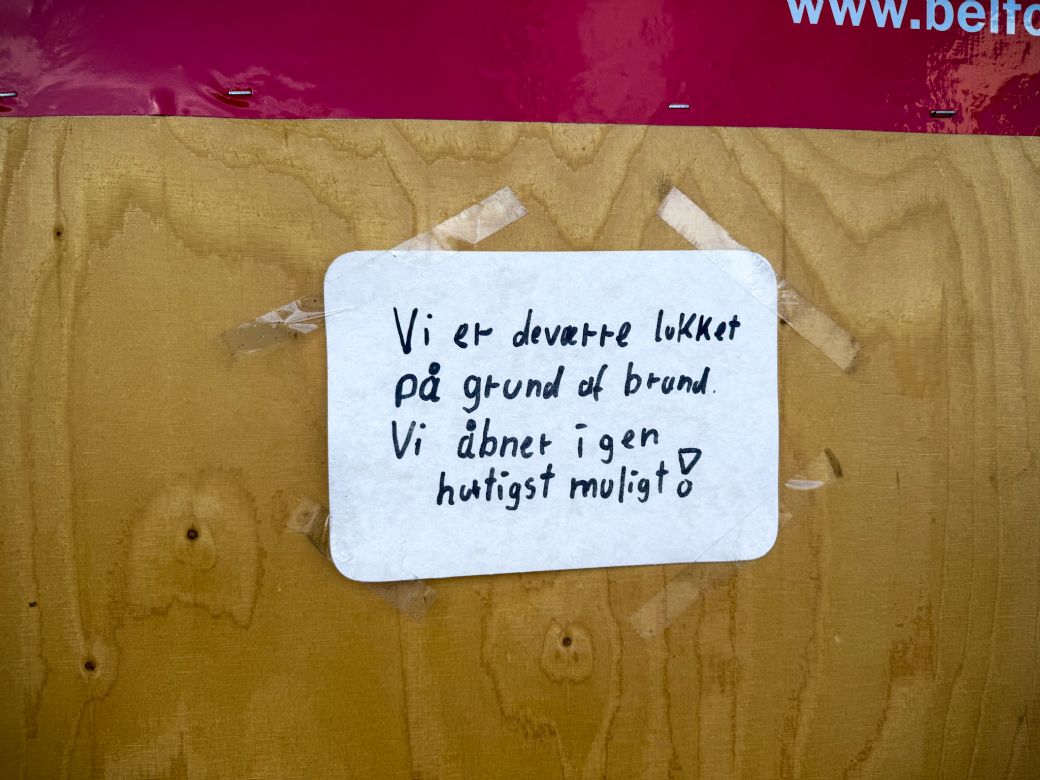 www.belfo
Vi er deværre lukket
på grund af brand.
Vi åbner igen
hurtigst muligt!